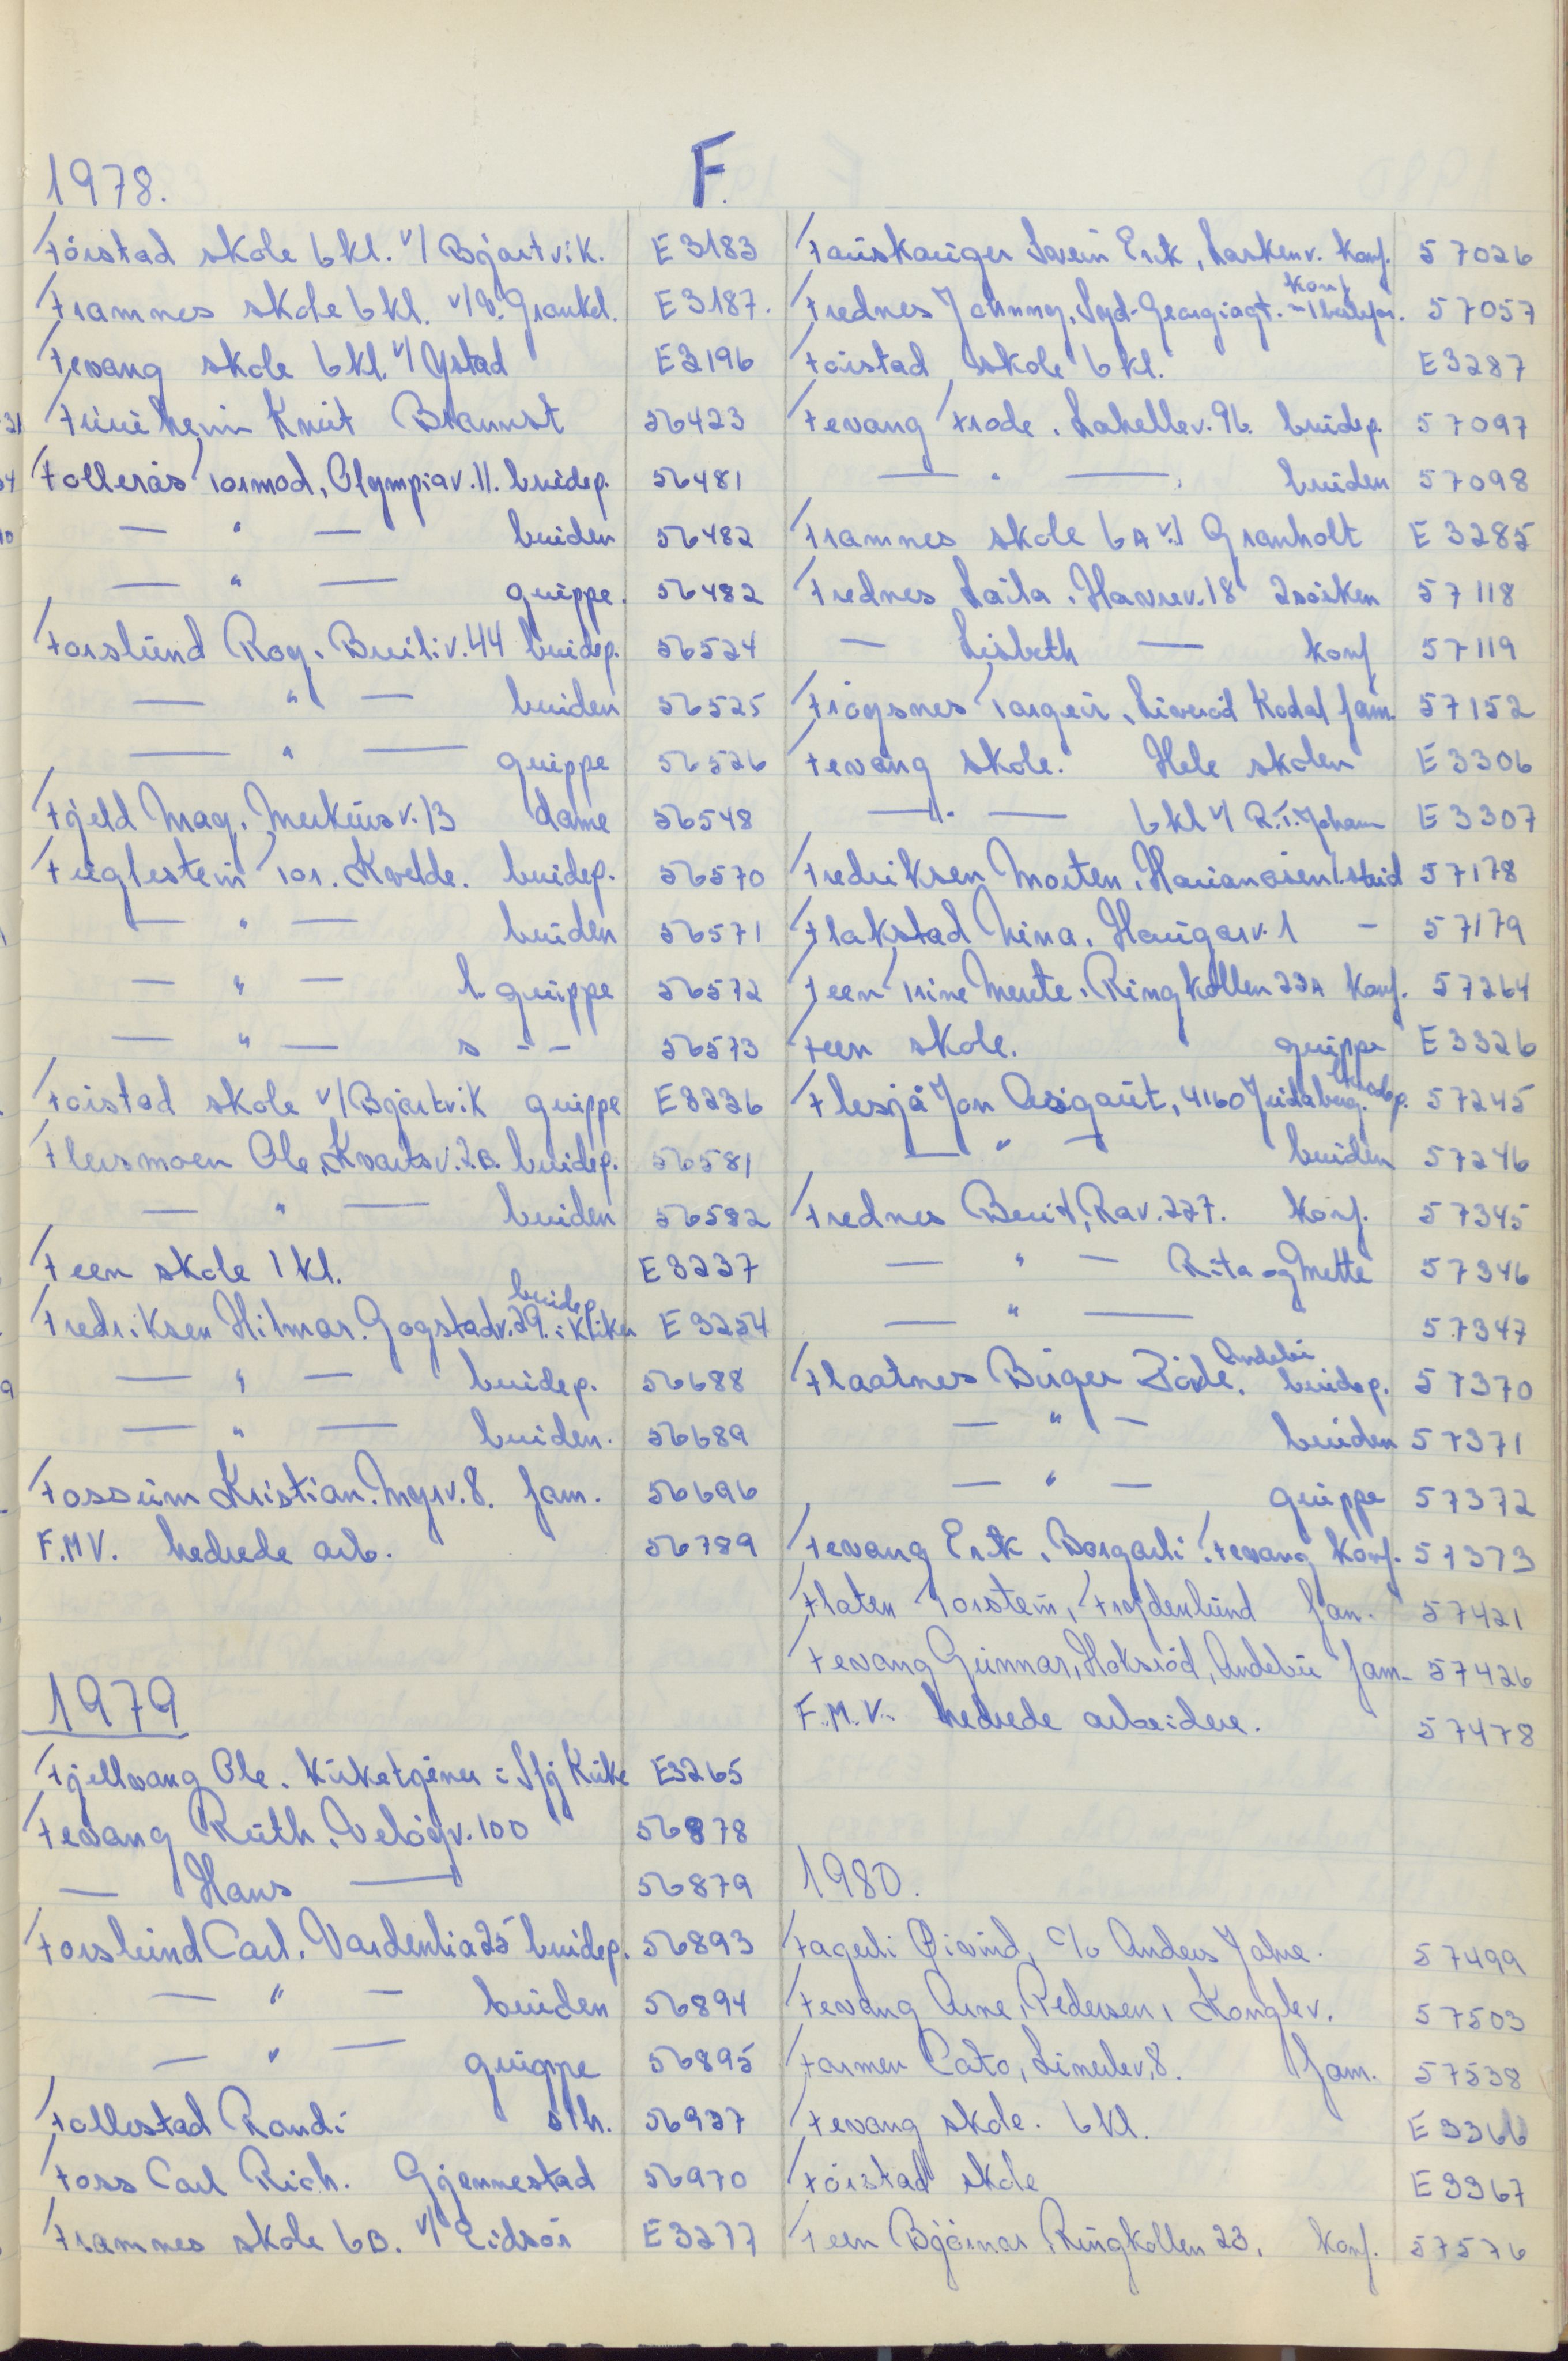 F.
1978.
Förstad skole 6 kl. v/ Bjartvik. E 3183
Framnes skole 6 kl. v/ Grankel. E 3187.
Fevang skole 6 kl. v/ Ystad E 3196
Knut 56423
Follerås Tormod, Olympiav. 11. brudep. 56481
— " — bruden 56482
— " — gruppe. 56482
Forslund Rog. 44 brudep. 56524
— " — bruden 56525
— " — gruppe 56526
Fjeld Mag. Merkurv. 13 dame 56548
Fuglestein Tor. Kvelde. brudep. 56570
— " — bruden 56571
— " — l. gruppe 56572
— " — s - - 56573
Förstad skole v/ Bjartvik gruppe E 3226
Flersmoen Ole, Kvartsv. 2B. brudep. 56581
— " — bruden 56582
Feen skole 1 kl. E 3237
Fredriksen Hilmar. Gogstadv. 29. brudep. i kirken E 3254
— " — brudep. 56688
— " — bruden. 56689
Fossum Kristian. Myrv. 8. fam. 56696
F.M.V. hedrede arb. 56789
1979
Fjellvang Ole. Kirketjener i Sfj Kirke E3265
Fevang Ruth. Velögv. 100 56878
— Hans — 56879
Forslund Carl. Vardenlia 25 brudep. 56893
— " — bruden 56894
— " — gruppe 56895
Follestad Randi sth. 56937
Foss Carl Rich. Gjennestad 56970
Framnes skole 6B. v/ Eidsör E 3277
Fauskanger Svein Erik, Larkenv. konf. 57026
Frednes Johnny, Syd-Georgiagt. konf 57057
Förstad skole 6 kl. E 3287
Fevang Frode. Lahellev. 96. brudep. 57097
— " — bruden 57098
Framnes skole 6A v/ Granholt E 3285
Frednes Laila. Havrev. 18 2 søsken 57118
— Lisbeth — konf 57119
Frögsnes Torgeir, Liveröd Kodal fam. 57152
Fevang skole. Hele skolen E 3306
— " — 6 kl v/ E 3307
Fredriksen Morten. Havianåsen 1. stud 57178
Flakstad Nina. Haugarv. 1 - 57179
Feen Trine Merete. Ringkollen 23A konf. 57264
Feen skole. gruppe E 3326
Flesjå Jon Asgaut, 4160 Judaberg. brudep. 57245
— " — bruden 57246
Frednes Berit, Rav. 227. konf. 57345
— " — Rita og Mette 57346
— " — 57347
Flaatnes Birger Andebu brudep. 57370
— " — bruden 57371
— " — gruppe 57372
Fevang Erik. Borgarli. Fevang konf. 57373
Flaten Torstein, Frydenlund fam. 57421
Fevang Gunnar, Haksröd, Andebu fam. 57426
F.M.V. hedrede arbeidere. 57478
1980.
Fagerli Øivind, c/o Anders Jahre. 57499
Fevang Arne, Pedersen, Konglev. 57503
Farmen Cato, Linerlev. 8. fam. 57538
Fevang skole. 6 kl. E 3366
Förstad skole E 3367
Feen Björnar, Ringkollen 23. konf. 57576